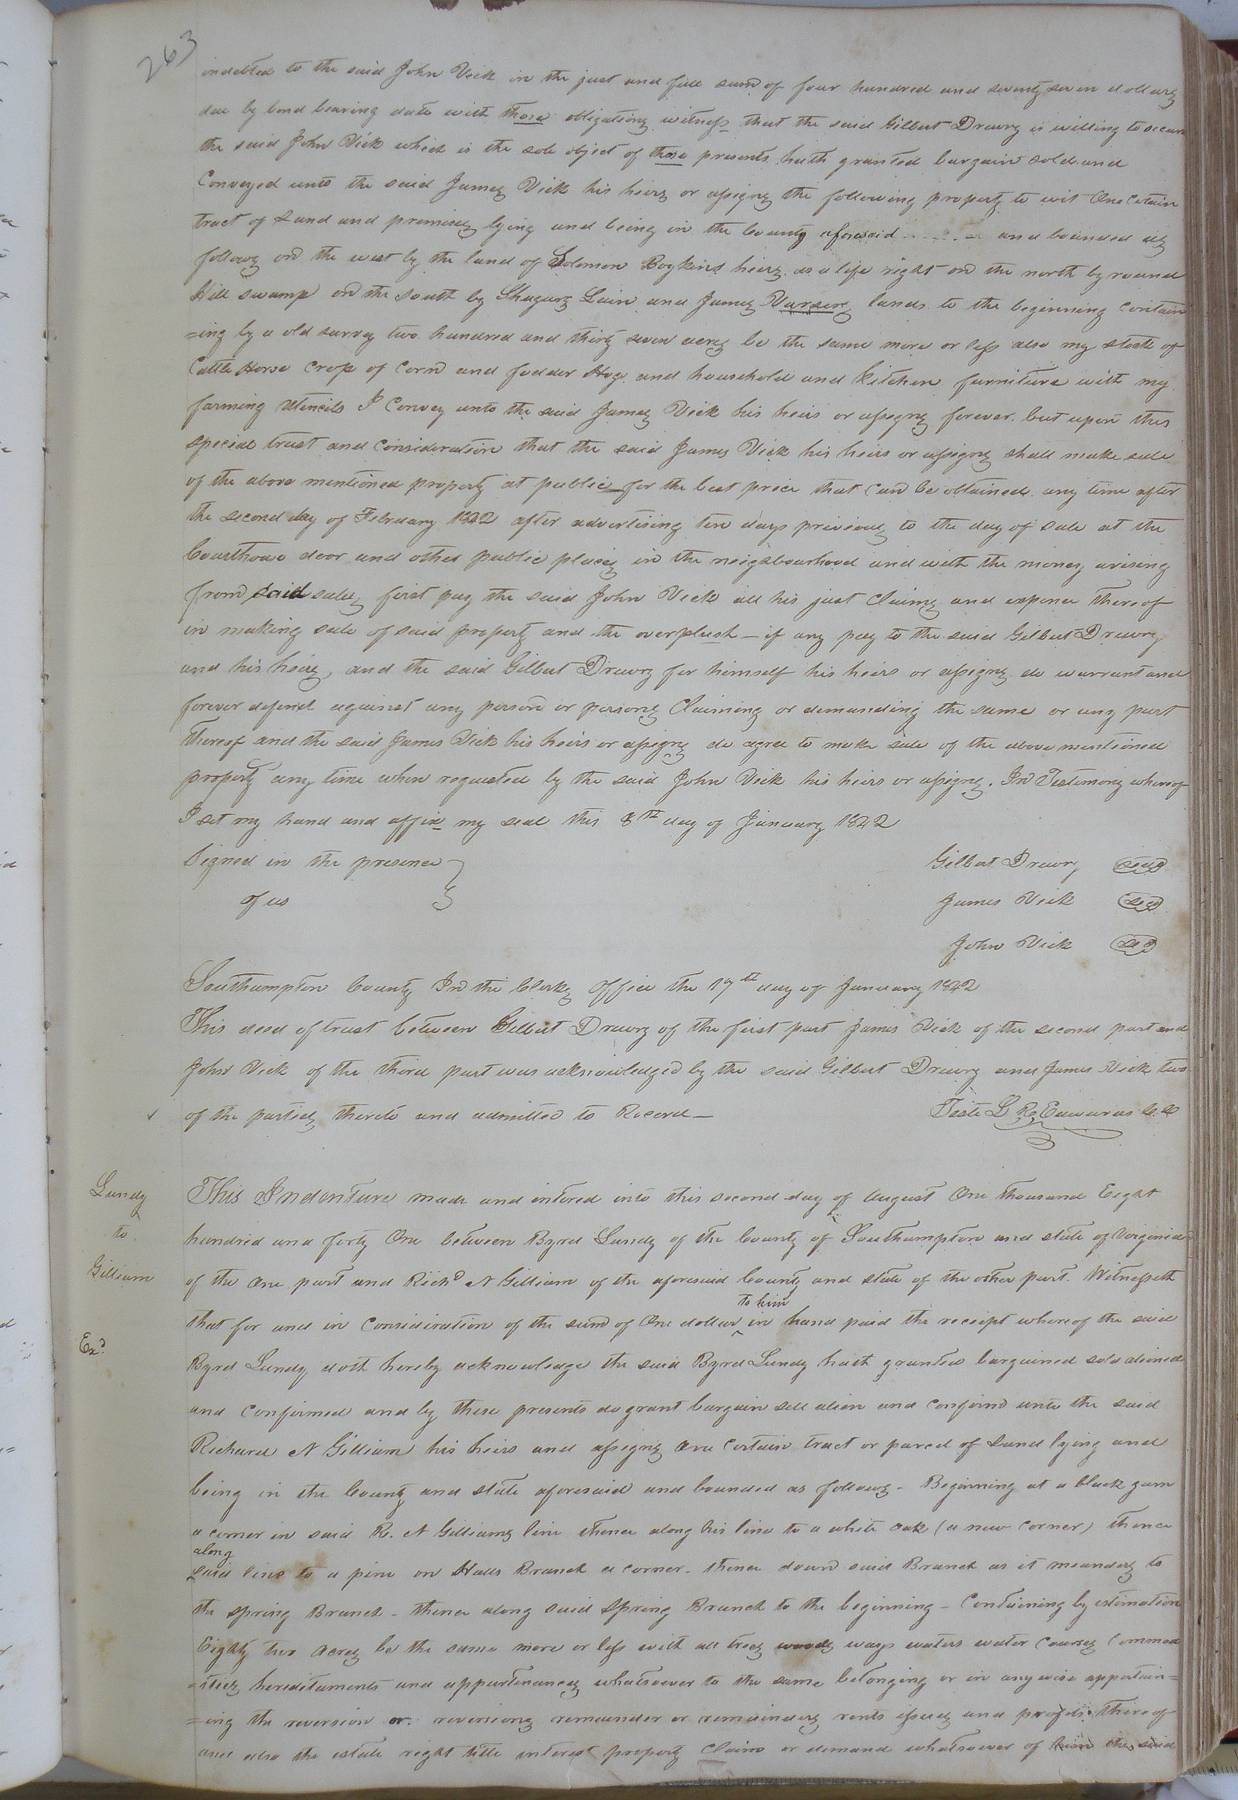 263
indebted to the said John Vick in the just and full sum of four hundred and seventy seven dollars
due by bond bearing date with those obligations witness that the said Gilbert Drewry is willing to secure
the said John Vick which is the sole object of those presents hath granted bargain sold and
Conveyed unto the said James Vick his heirs or assigns the following property to wit One Certain
tract of Land and premises lying and being in the County aforesaid and bounded as
follows on the west by the land of Solomon Boykins heirs as a life right on the north by round
Hill swamp on the South by Lain and James lands to the beginning contain
=ing by a old survey two hundred and thirty seven acres be the same more or less also my stock of
Cattle Horse Crop of Corn and fodder Hogs and household and kitchen furniture with my
farming utencils I Convey unto the said James Vick his heirs or assigns forever. but upon this
special trust and consideration that the said James Vick his heirs or assigns shall make sale
of the above mentioned property at public for the best price that can be obtained any time after
the second day of February 1842 after advertising ten days previous to the day of sale at the
Courthouse door and other public places in the neighbourhood and with the money arising
from said sales first pay the said John Vick all his just Claims and expence thereof
in making sale of said property and the overplush — if any pay to the said Gilbert Drewry
and his heirs, and the said Gilbert Drewry for himself his heirs or assigns do warrant and
forever defend against any person or persons Claiming or demanding the same or any part
thereof and the said James Vick his heirs or assigns do agree to make sale of the above mentioned
property any time when requested by the said John Vick his heirs or assigns. In Testimony whereof
I set my hand and affix my seal this 8th day of January 1842
Signed in the presence
of us
Gilbert Drewry seal
James Vick seal
John Vick seal
Southampton County In the Clerks Office the 17th day of January 1842
This deed of trust between Gilbert Drewry of the first part James Vick of the second part and
John Vick of the third part was acknowledged by the said Gilbert Drewry and James Vick two
of the parties thereto and admitted to Record —
Teste L R Edwards C.C
Lundy
to
Gilliam
Exd
This Indenture made and entered into this second day of August One thousand Eight
hundred and forty One between Byrd Lundy of the County of Southampton and state of Virginia
of the One part and Richd N Gilliam of the aforesaid County and state of the other part. Witnesseth
that for and in Consideration of the sum of One dollar to him in hand paid the receipt whereof the said
Byrd Lundy doth hereby acknowledge the said Byrd Lundy hath granted bargained sold aliened
and Confirmed and by these presents do grant bargain sell alien and confirm unto the said
Richard N Gilliam his heirs and assigns One certain tract or parcel of Land lying and
being in the County and state aforesaid and bounded as follows - Beginning at a black gum
a corner in said R. N Gilliams line thence along his line to a white oak (a new corner) thence
along said line to a pine on Halls Branch a corner - thence down said Branch as it meanders to
the spring Branch - thence along said Spring Branch to the beginning - Containing by estimation
Eighty two acres be the same more or less with all trees woods ways waters water courses Commod
=ities hereditaments and appurtenances whatsoever to the same belonging or in any wise appertain=
=ing the reversion or reversions remainder or remainders rents issues and profits thereof
and also the estate right title interest property Claim or demand whatsoever of him the said